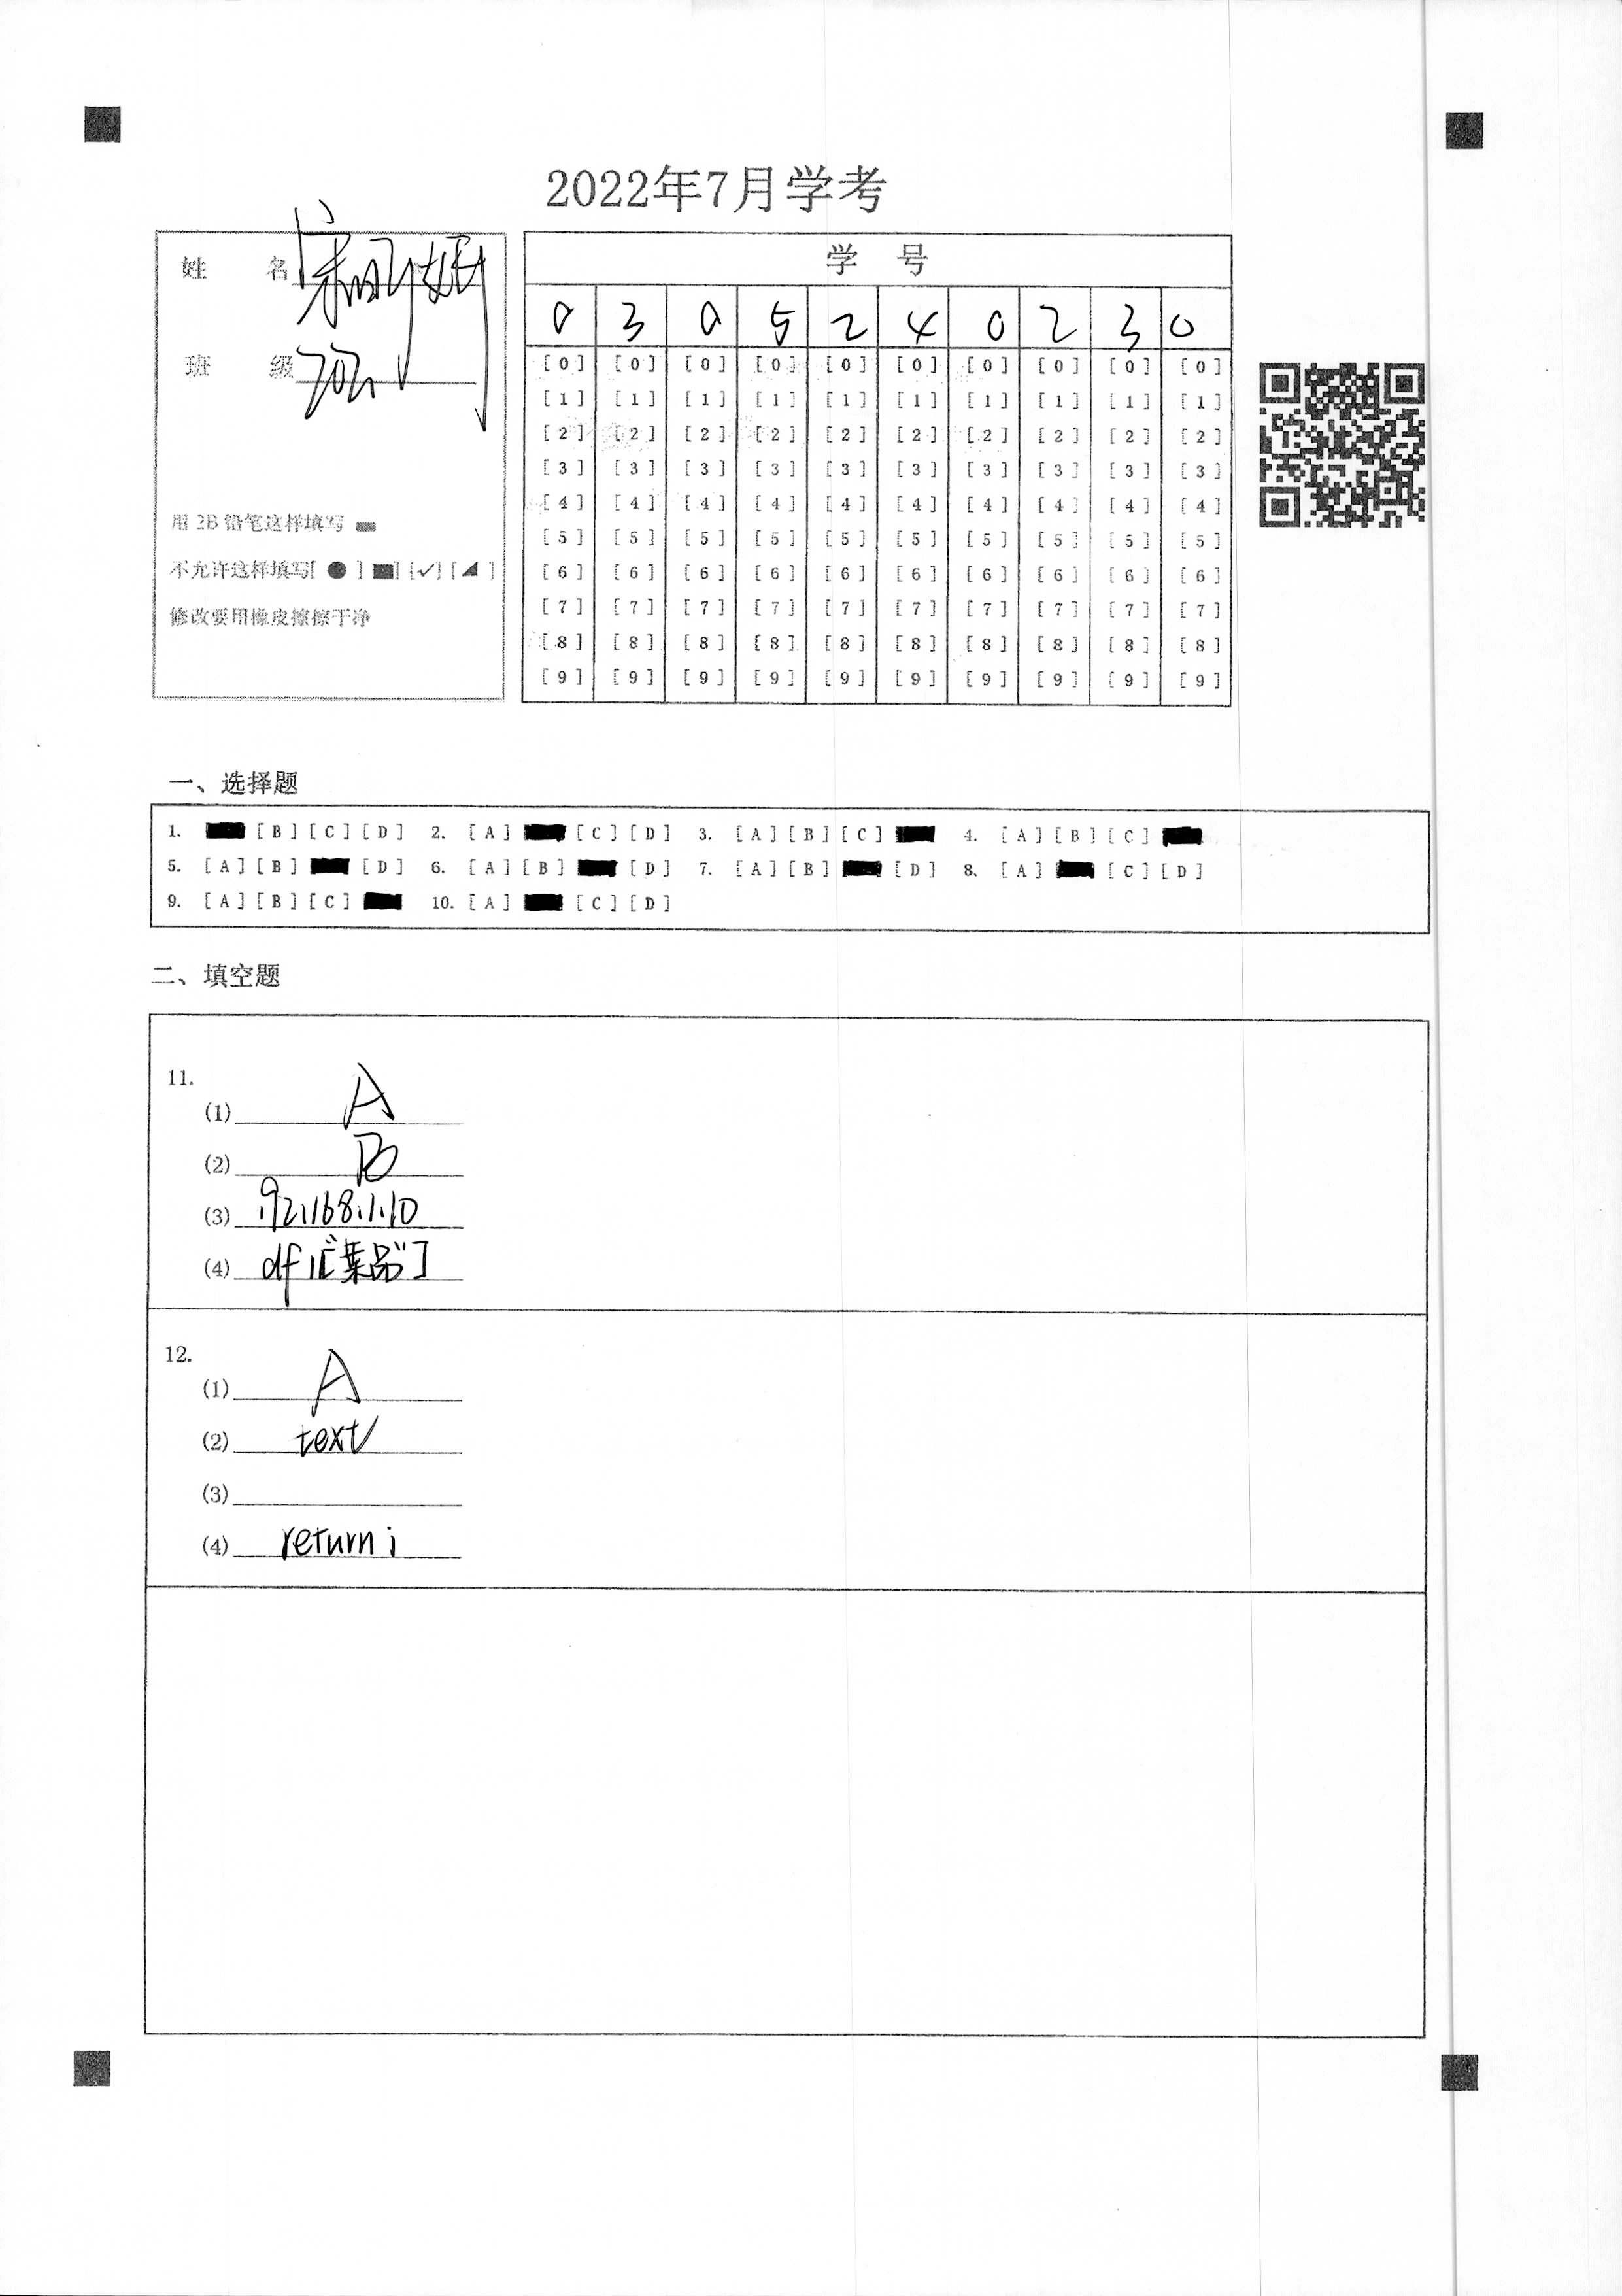 2022年7月学考
姓 名
班 级 702
用 2B 铅笔这样填写
不允许这样填写[ ● ] [■] [✓] [◢ ]
修改要用橡皮擦擦干净
学 号
0 3 0 5 2 4 0 2 3 0
[0] [0] [0] [0] [0] [0] [0] [0] [0] [0]
[1] [1] [1] [1] [1] [1] [1] [1] [1] [1]
[2] [2] [2] [2] [2] [2] [2] [2] [2] [2]
[3] [3] [3] [3] [3] [3] [3] [3] [3] [3]
[4] [4] [4] [4] [4] [4] [4] [4] [4] [4]
[5] [5] [5] [5] [5] [5] [5] [5] [5] [5]
[6] [6] [6] [6] [6] [6] [6] [6] [6] [6]
[7] [7] [7] [7] [7] [7] [7] [7] [7] [7]
[8] [8] [8] [8] [8] [8] [8] [8] [8] [8]
[9] [9] [9] [9] [9] [9] [9] [9] [9] [9]
一、选择题
1. [B] [C] [D] 2. [A] [C] [D] 3. [A] [B] [C] 4. [A] [B] [C]
5. [A] [B] [D] 6. [A] [B] [D] 7. [A] [B] [D] 8. [A] [C] [D]
9. [A] [B] [C] 10. [A] [C] [D]
二、填空题
11.
(1) A
(2) B
(3) 192.168.1.10
(4) df1["菜品"]
12.
(1) A
(2) text
(3)
(4) return i